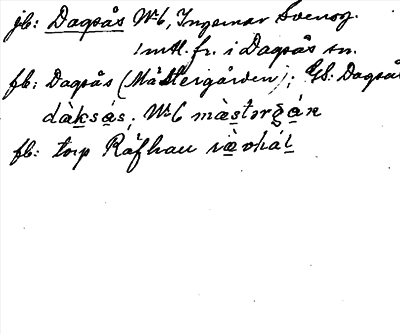 jb: Dagsås Nr 6, Ingemar Svensg.
1 mtl. fr. i Dagsås sn.
fb: Dagsås (Mästergården); GS: Dagsås
dàksás; Nr 6 màstərgán
fb: torp Räfhau